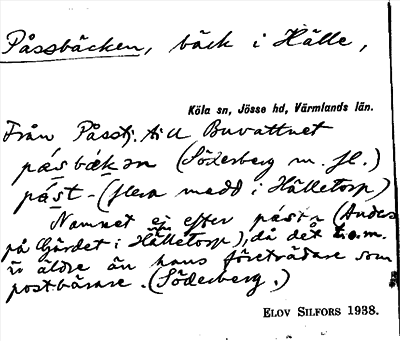 Påssbäcken, bäck i Hälle,
Köla sn, Jösse hd, Värmlands län.
Från Påsstj. till Buvattnet
pásbækən (Söderberg m. fl.)
pást- (flera medd i Hälletorp)
Namnet ej efter pástn (Anders
på Gärdet i Hälletorp), då det t.o.m.
är äldre än hans företrädare som
postbärare. (Söderberg.)
ELOV SILFORS 1938.